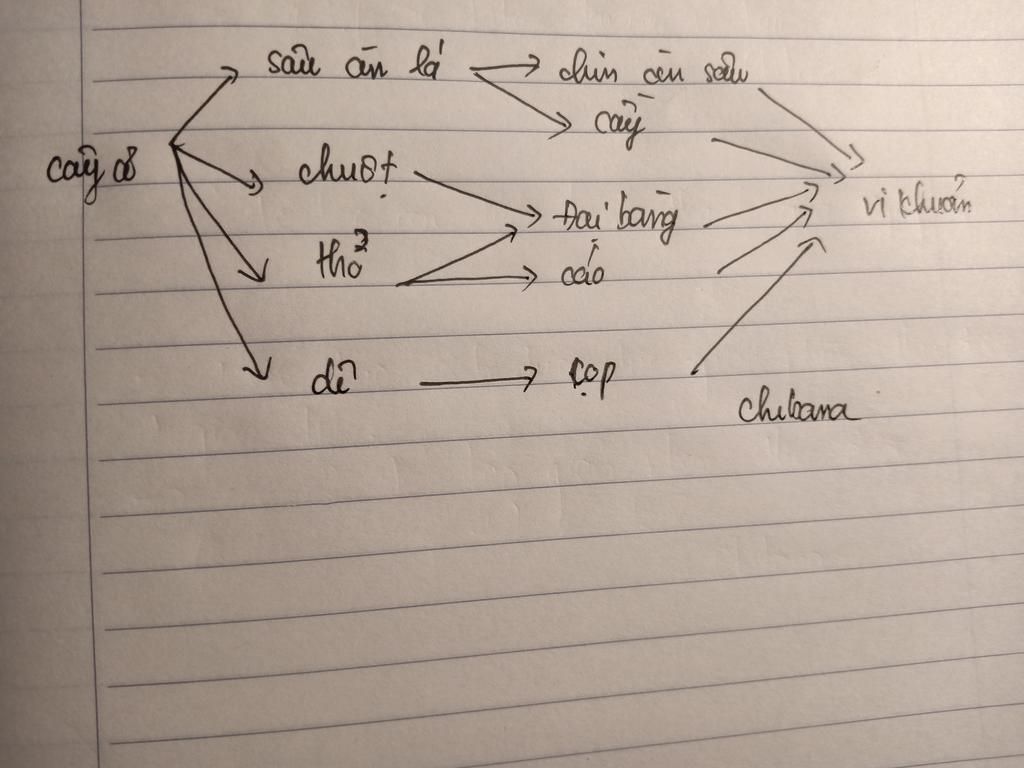 sâu ăn lá
chim ăn sâu
cầy
cây cỏ
chuột
vi khuẩn
Đại bàng
thỏ
cáo
dê
cọp
chibana